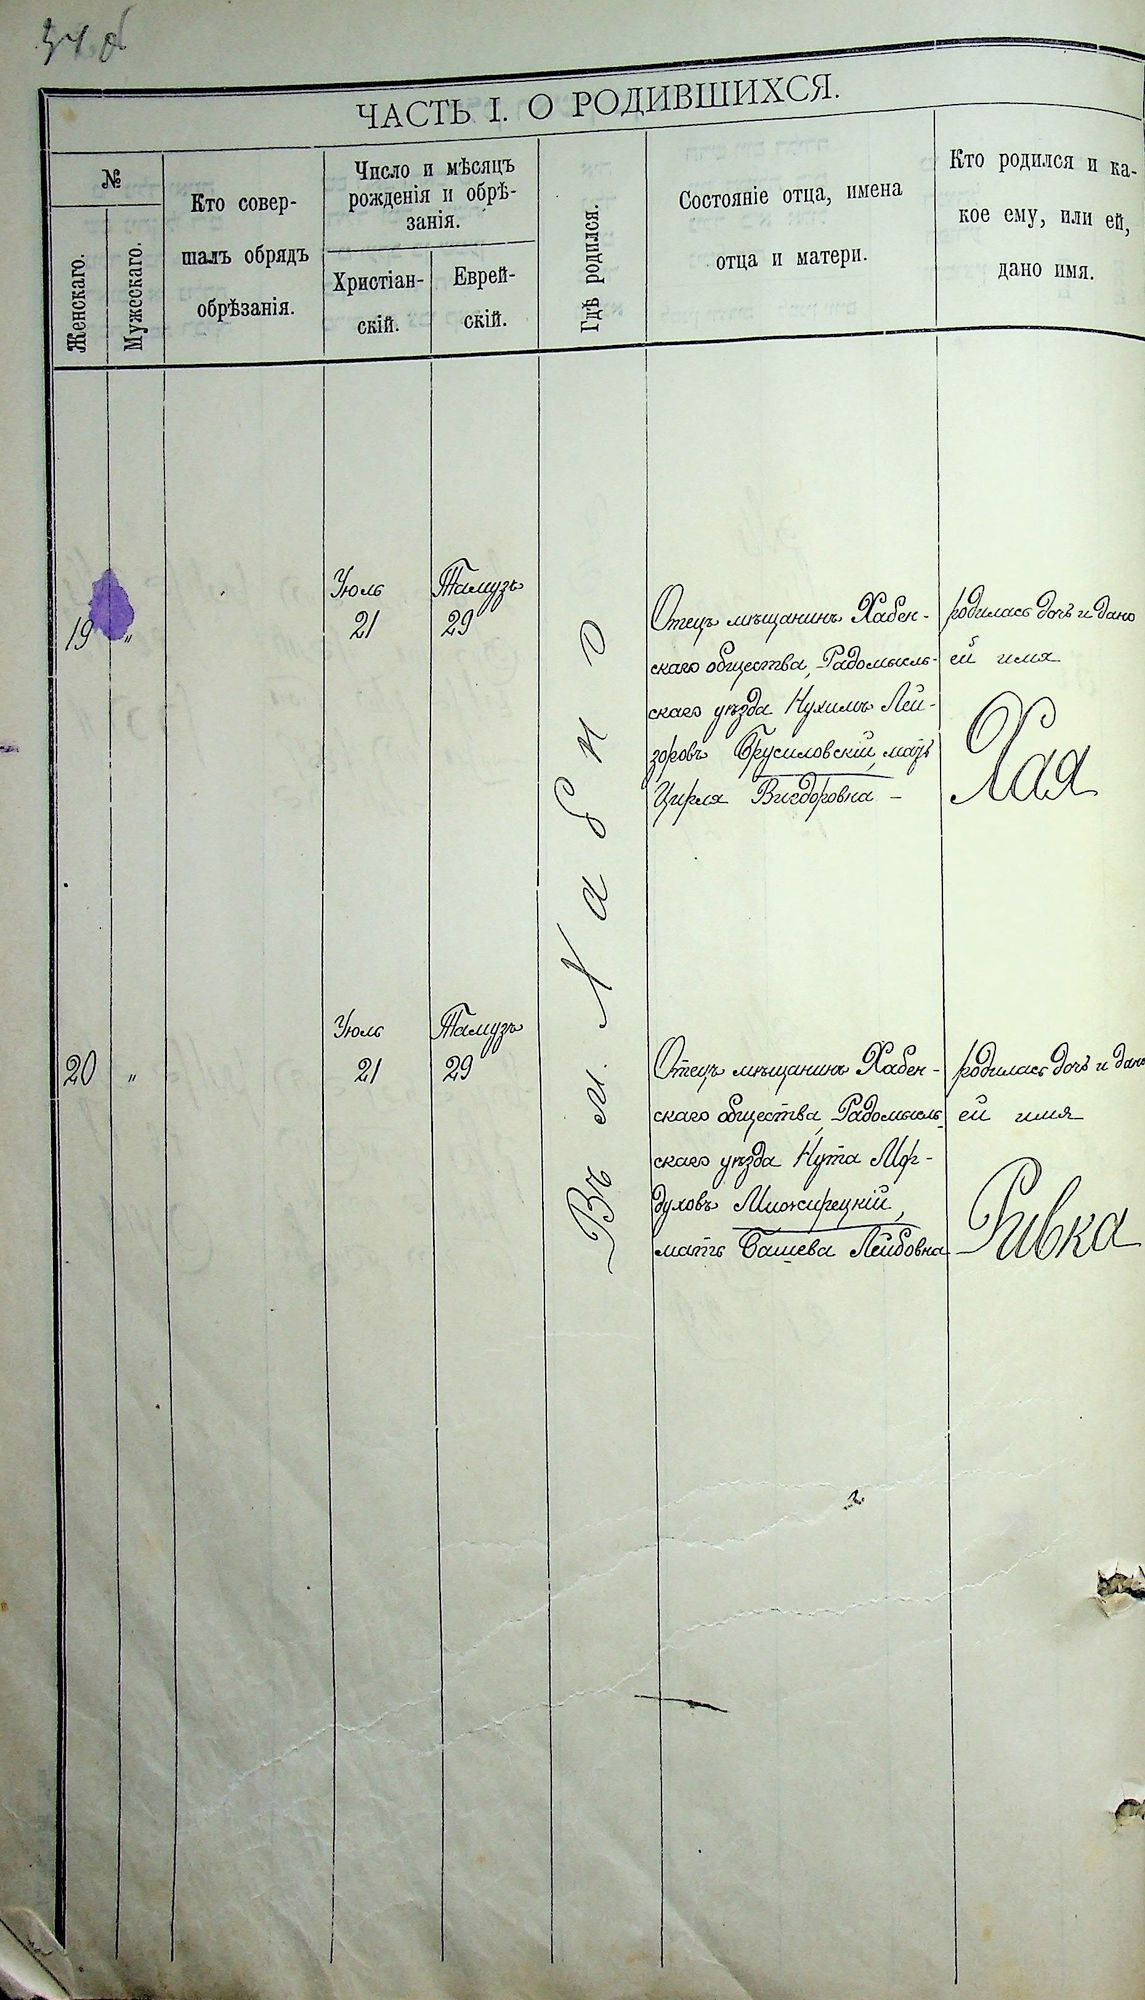 ЧАСТЬ I. О РОДИВШИХСЯ.
№
Женскаго.
Мужескаго.
Кто совер-
шалъ обрядъ
обрѣзанія.
Число и мѣсяцъ
рожденія и обрѣ-
занія.
Христіан-
скій.
Еврей-
скій.
Гдѣ родился.
Состояніе отца, имена
отца и матери.
Кто родился и ка-
кое ему, или ей,
дано имя.
19
"
Июль
21
Тамузъ
29
Въ м. Хабно
Отецъ мѣщанинъ Хабен-
скаго общества, Радомысль-
скаго уѣзда Нухимъ Лей-
зоровъ Брусиловскій, мать
Цирля Вигдоровна –
родилась дочь и дано
ей имя
Хая
20
"
Июль
21
Тамузъ
29
Отецъ мѣщанинъ Хабен-
скаго общества, Радомысль-
скаго уѣзда Нута Мор-
духовъ Миожирецкій,
мать Башева Лейбовна
родилась дочь и дано
ей имя
Ривка